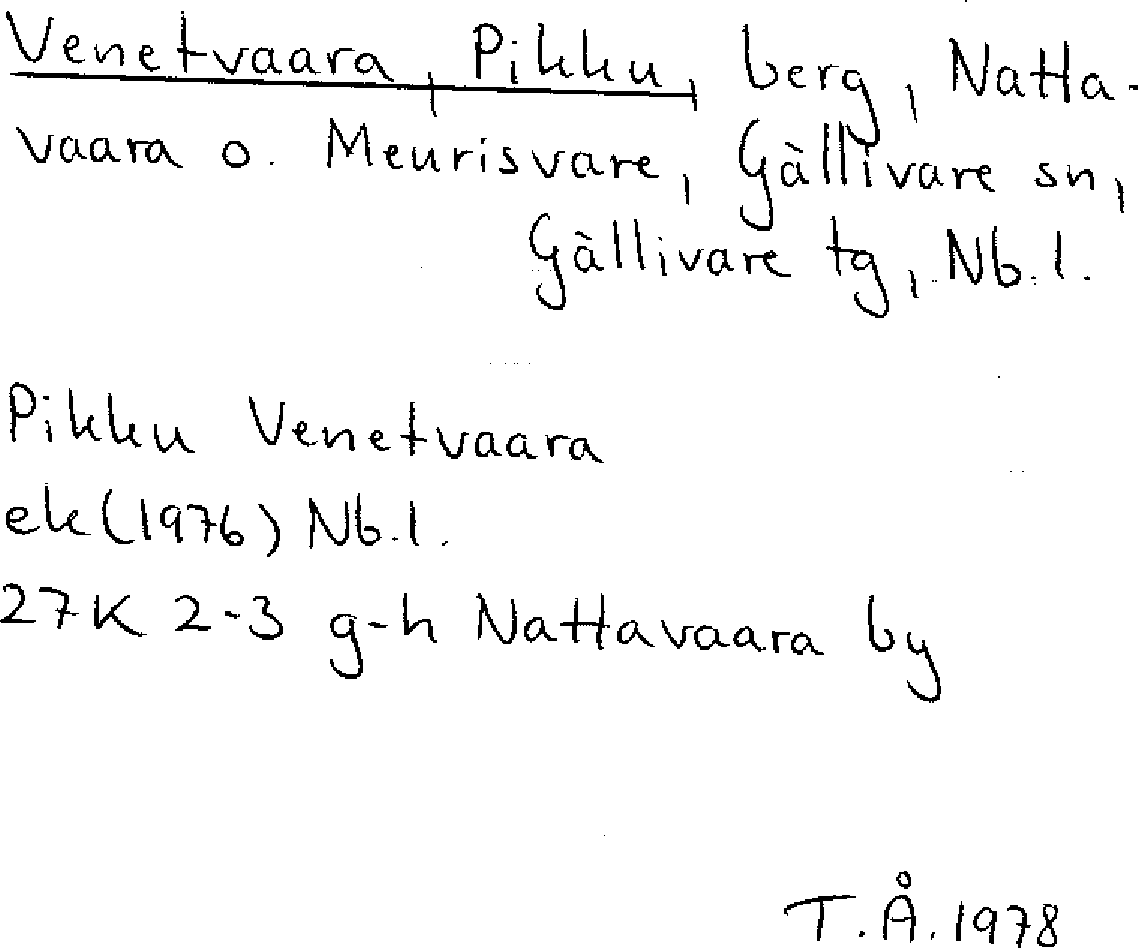 Venetvaara, Pikku, berg, Natta-
vaara o. Meurisvare, Gällivare sn,
Gällivare tg, Nb.l.
Pikku Venetvaara
ek (1976) Nb.l.
27K 2-3 g-h Nattavaara by
T.Å. 1978